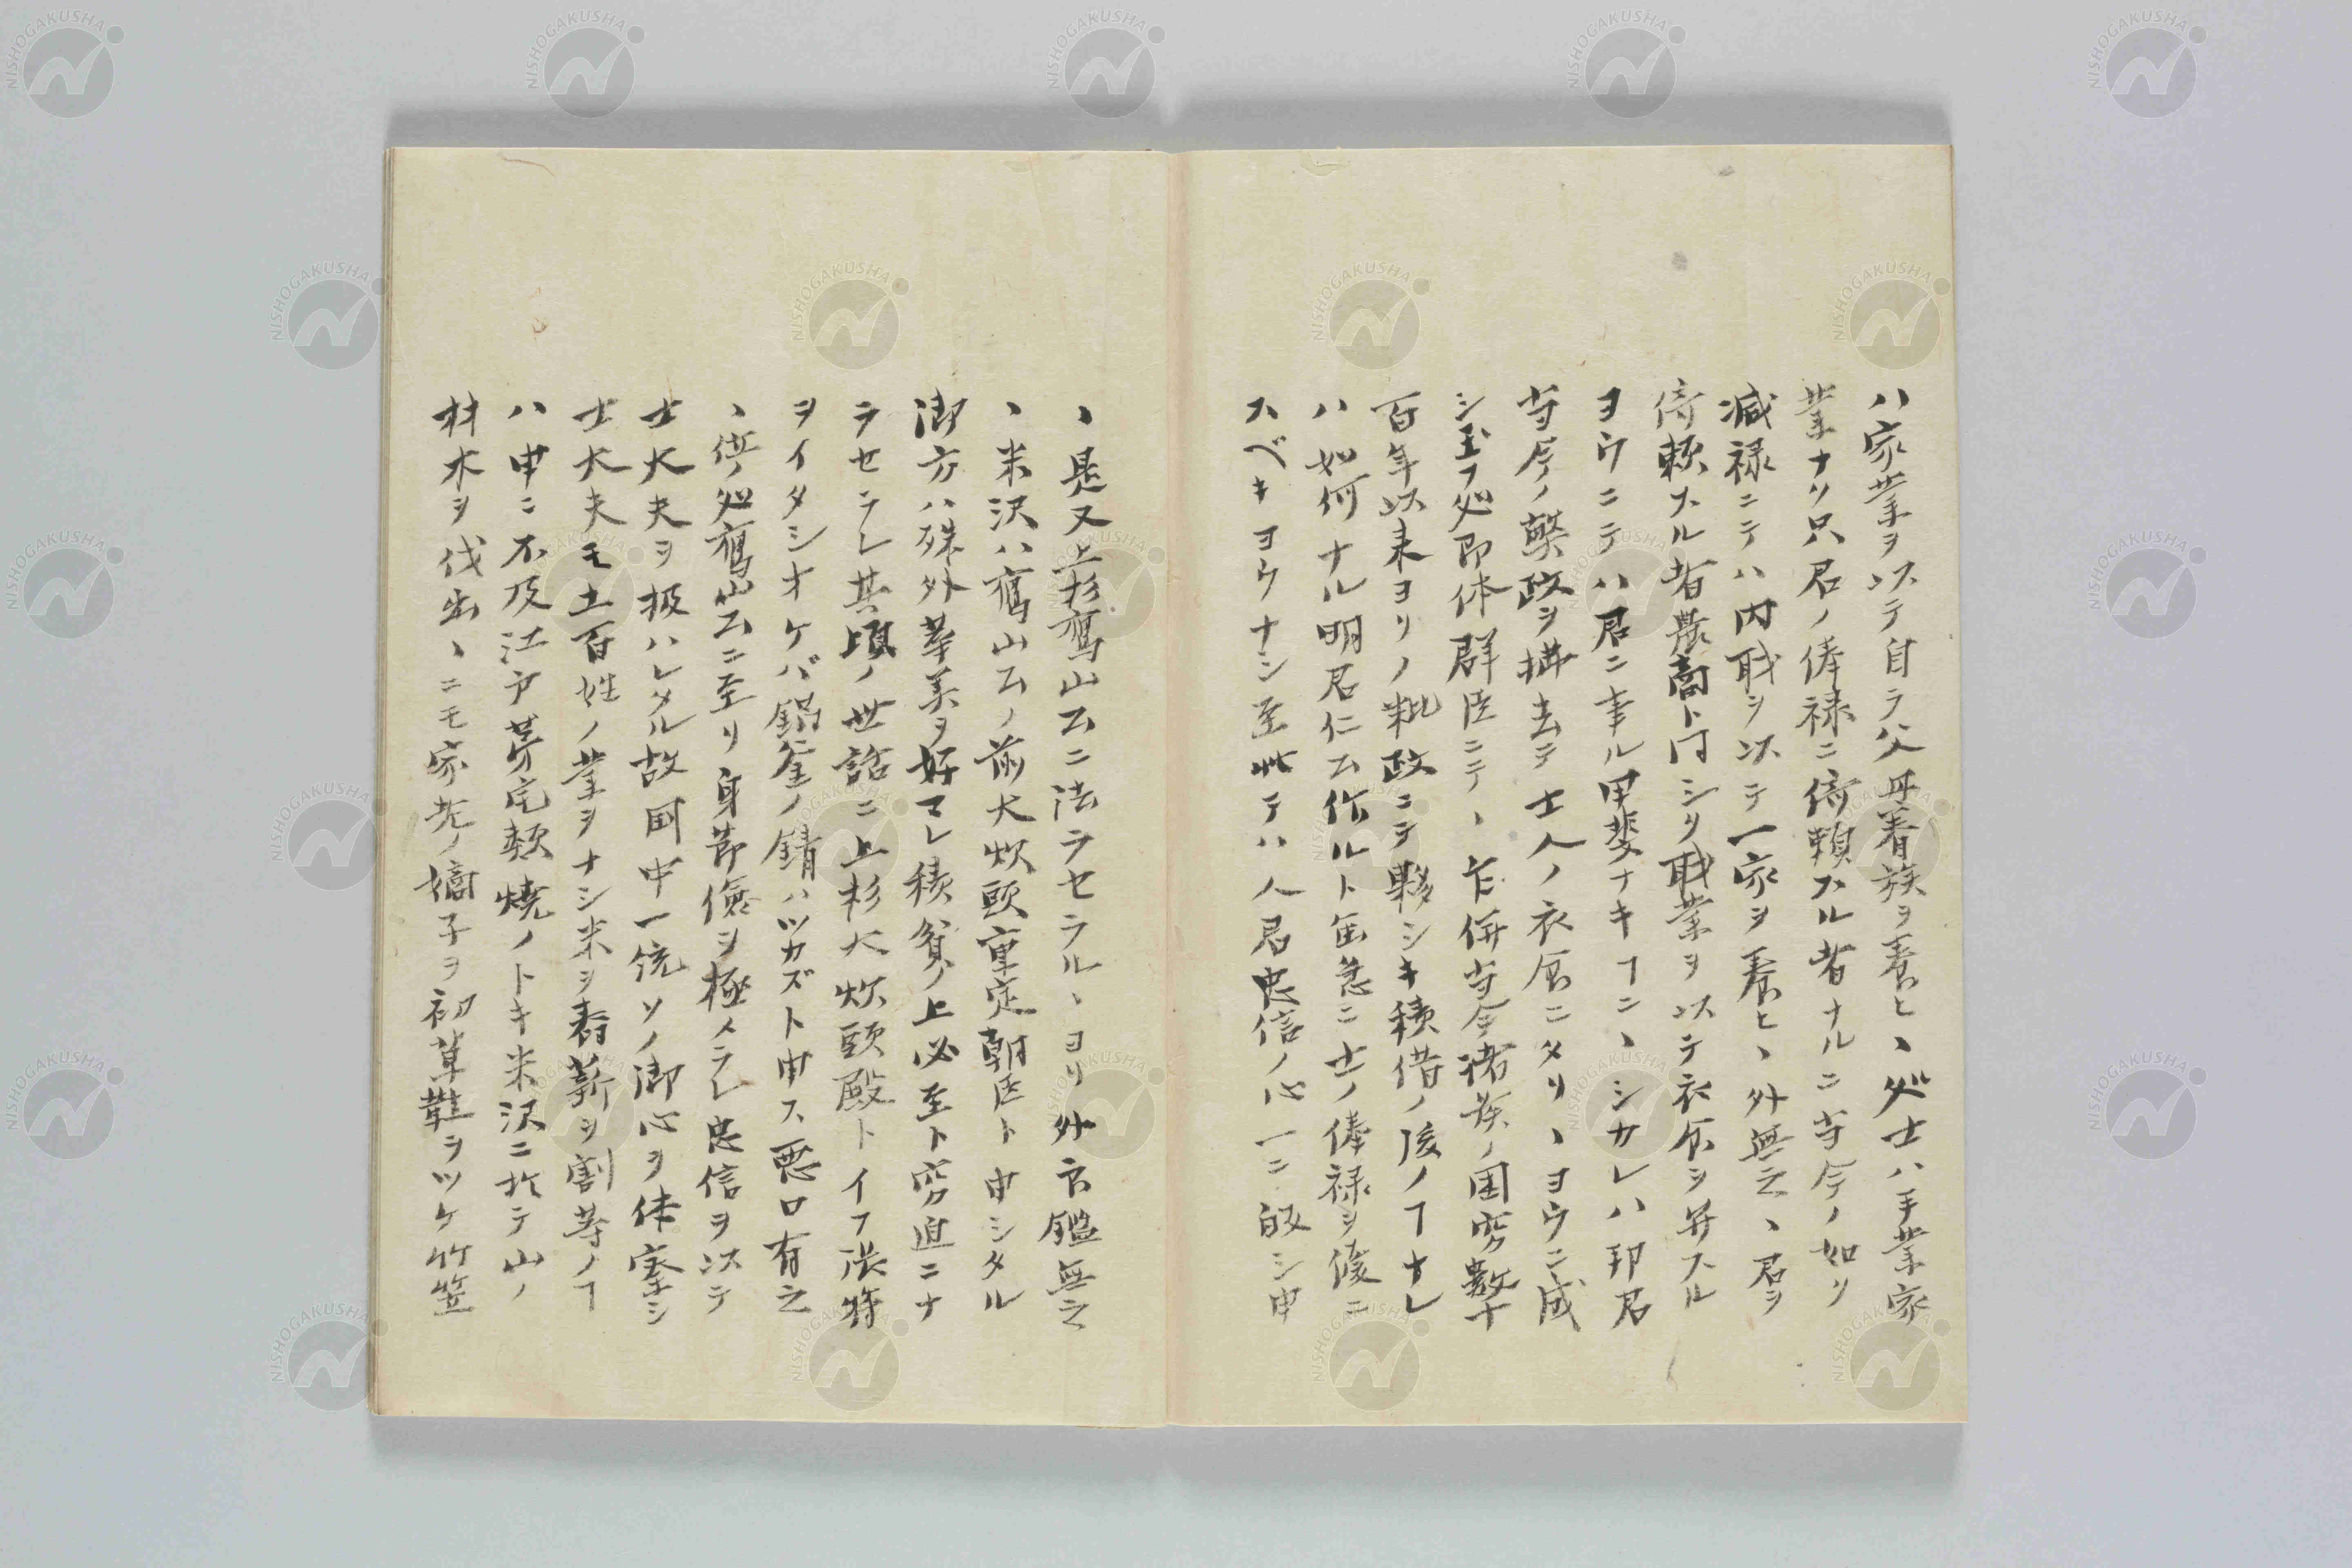 ハ家業ヲ以テ自ラ父母眷族ヲ養ヒ、処士ハ手業家
業ナリ只君ノ俸禄ニ倚頼スル者ナルニ当今ノ如ク
減禄ニテハ内職ヲ以テ一家ヲ養ヒ、外無之、君ヲ
倚頼スル者農商ト同シク職業ヲ以テ衣食シ弁スル
ヨウニテハ君ニ事ル甲斐ナキヿニ、シカレハ邦君
当今ノ弊政ヲ掃去テ士人ノ衣食ニタリ、ヨウニ成
シ玉フ処即体群臣ニテ、乍併当今諸族ノ困窮数十
百年以来ヨリノ粃政ニテ夥シキ積借ノ後ノヿナレ
ハ如何ナル明君仁公作ルト缶急ニ士ノ俸禄ヲ復ニ
スベキヨウナシ至此テハ人君忠信ノ心一ニ皈シ申
、是又上杉鷹山公ニ法ラセラル、ヨリ外君鑑無之
、米沢ハ鷹山公ノ前大炊頭重定朝臣ト申シタル
御方ハ殊外華美ヲ好マレ積貧ノ上必至ト窮迫ニナ
ラセラレ其頃ノ世話ニ上杉大炊頭殿トイフ張符
ヲイタシオケバ鍋釜ノ錆ハツカズト申ス悪口有之
、併処鷹山公ニ至リ身節倹ヲ極メラレ忠信ヲ以テ
士大夫ヲ扱ハレタル故国中一統ソノ御心ヲ体察シ
士大夫モ土百姓ノ業ヲナシ米ヲ舂薪ヲ割等ノヿ
ハ申ニ不及江戸藩宅類焼ノトキ米沢ニ於テ山ノ
材木ヲ伐出、ニモ家老ノ嫡子ヲ初草鞋ヲツケ竹笠